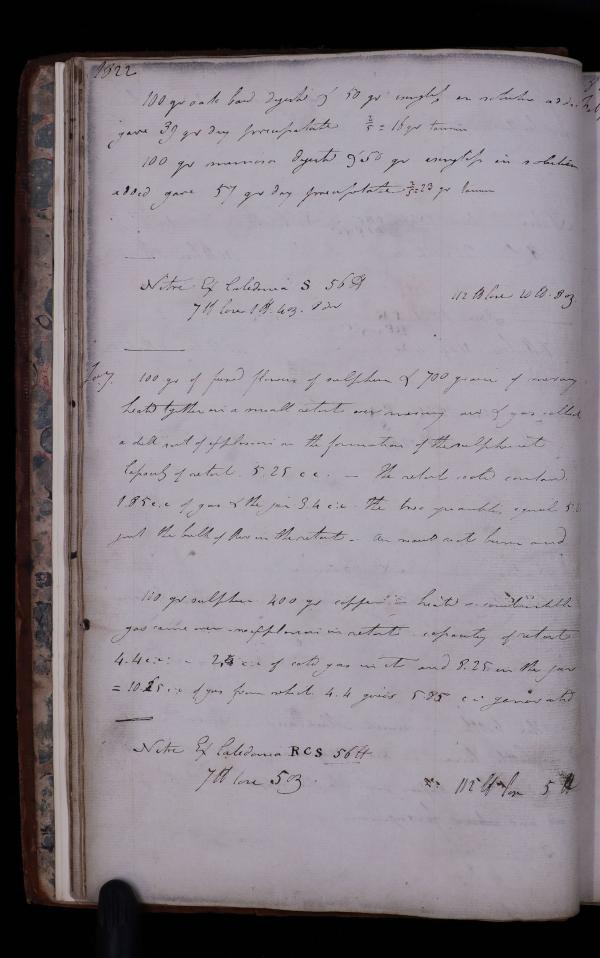 1822
100 gr oak bark digested & 50 gr isinglass in solution added
gave 39 gr dry precipitate 2/5 = 16 gr tannin
100 gr mimosa digested & 50 gr isinglass in solution
added gave 57 gr dry precipitate 2/5 = 23 gr tannin
Nitre Ex Caledonia S 56 lb
7 lb lose 1 lb. 4 oz. 8 dr
112 lb lose 20 lb. 8 oz
100 gr of fused flowers of sulphur & 700 grains of mercury
heated together in a small retort over mercury and gas collected
a dull sort of explosion on the formation of the sulphuret
Capacity of retort 5.25 c.i. — the retort cold contained
1.85 c.i. of gas & the jar 3.4 c.i. the two quantities equal
just the bulk of air in the retort - air would not burn and
100 gr sulphur 400 gr copper heated combustible
gas came over - no explosion in retort - capacity of retort
4.4 c.i. of cold gas in it and 8.25 in the jar
= c.i. of gas from which 4.4 gives 5.85 c.i. generated
Nitre Ex Caledonia RCS 56 lb
7 lb lose 5 oz.
112 lb lose 5 lb